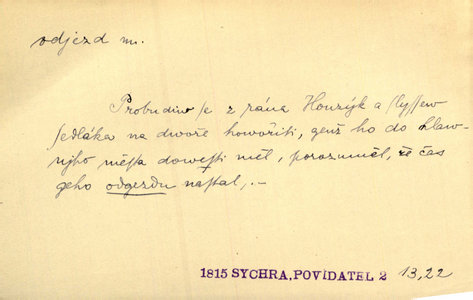 odjezd m.
Probudiw ſe z rána Honzýk a ſlyſſew
ſedláka na dwoře howořiti, genž ho do hlaw-
nýho měſta doweſti měl, porozuměl, že čas
geho odgezdu naſtal,.–
1815 SYCHRA, POVÍDATEL 2 13,22